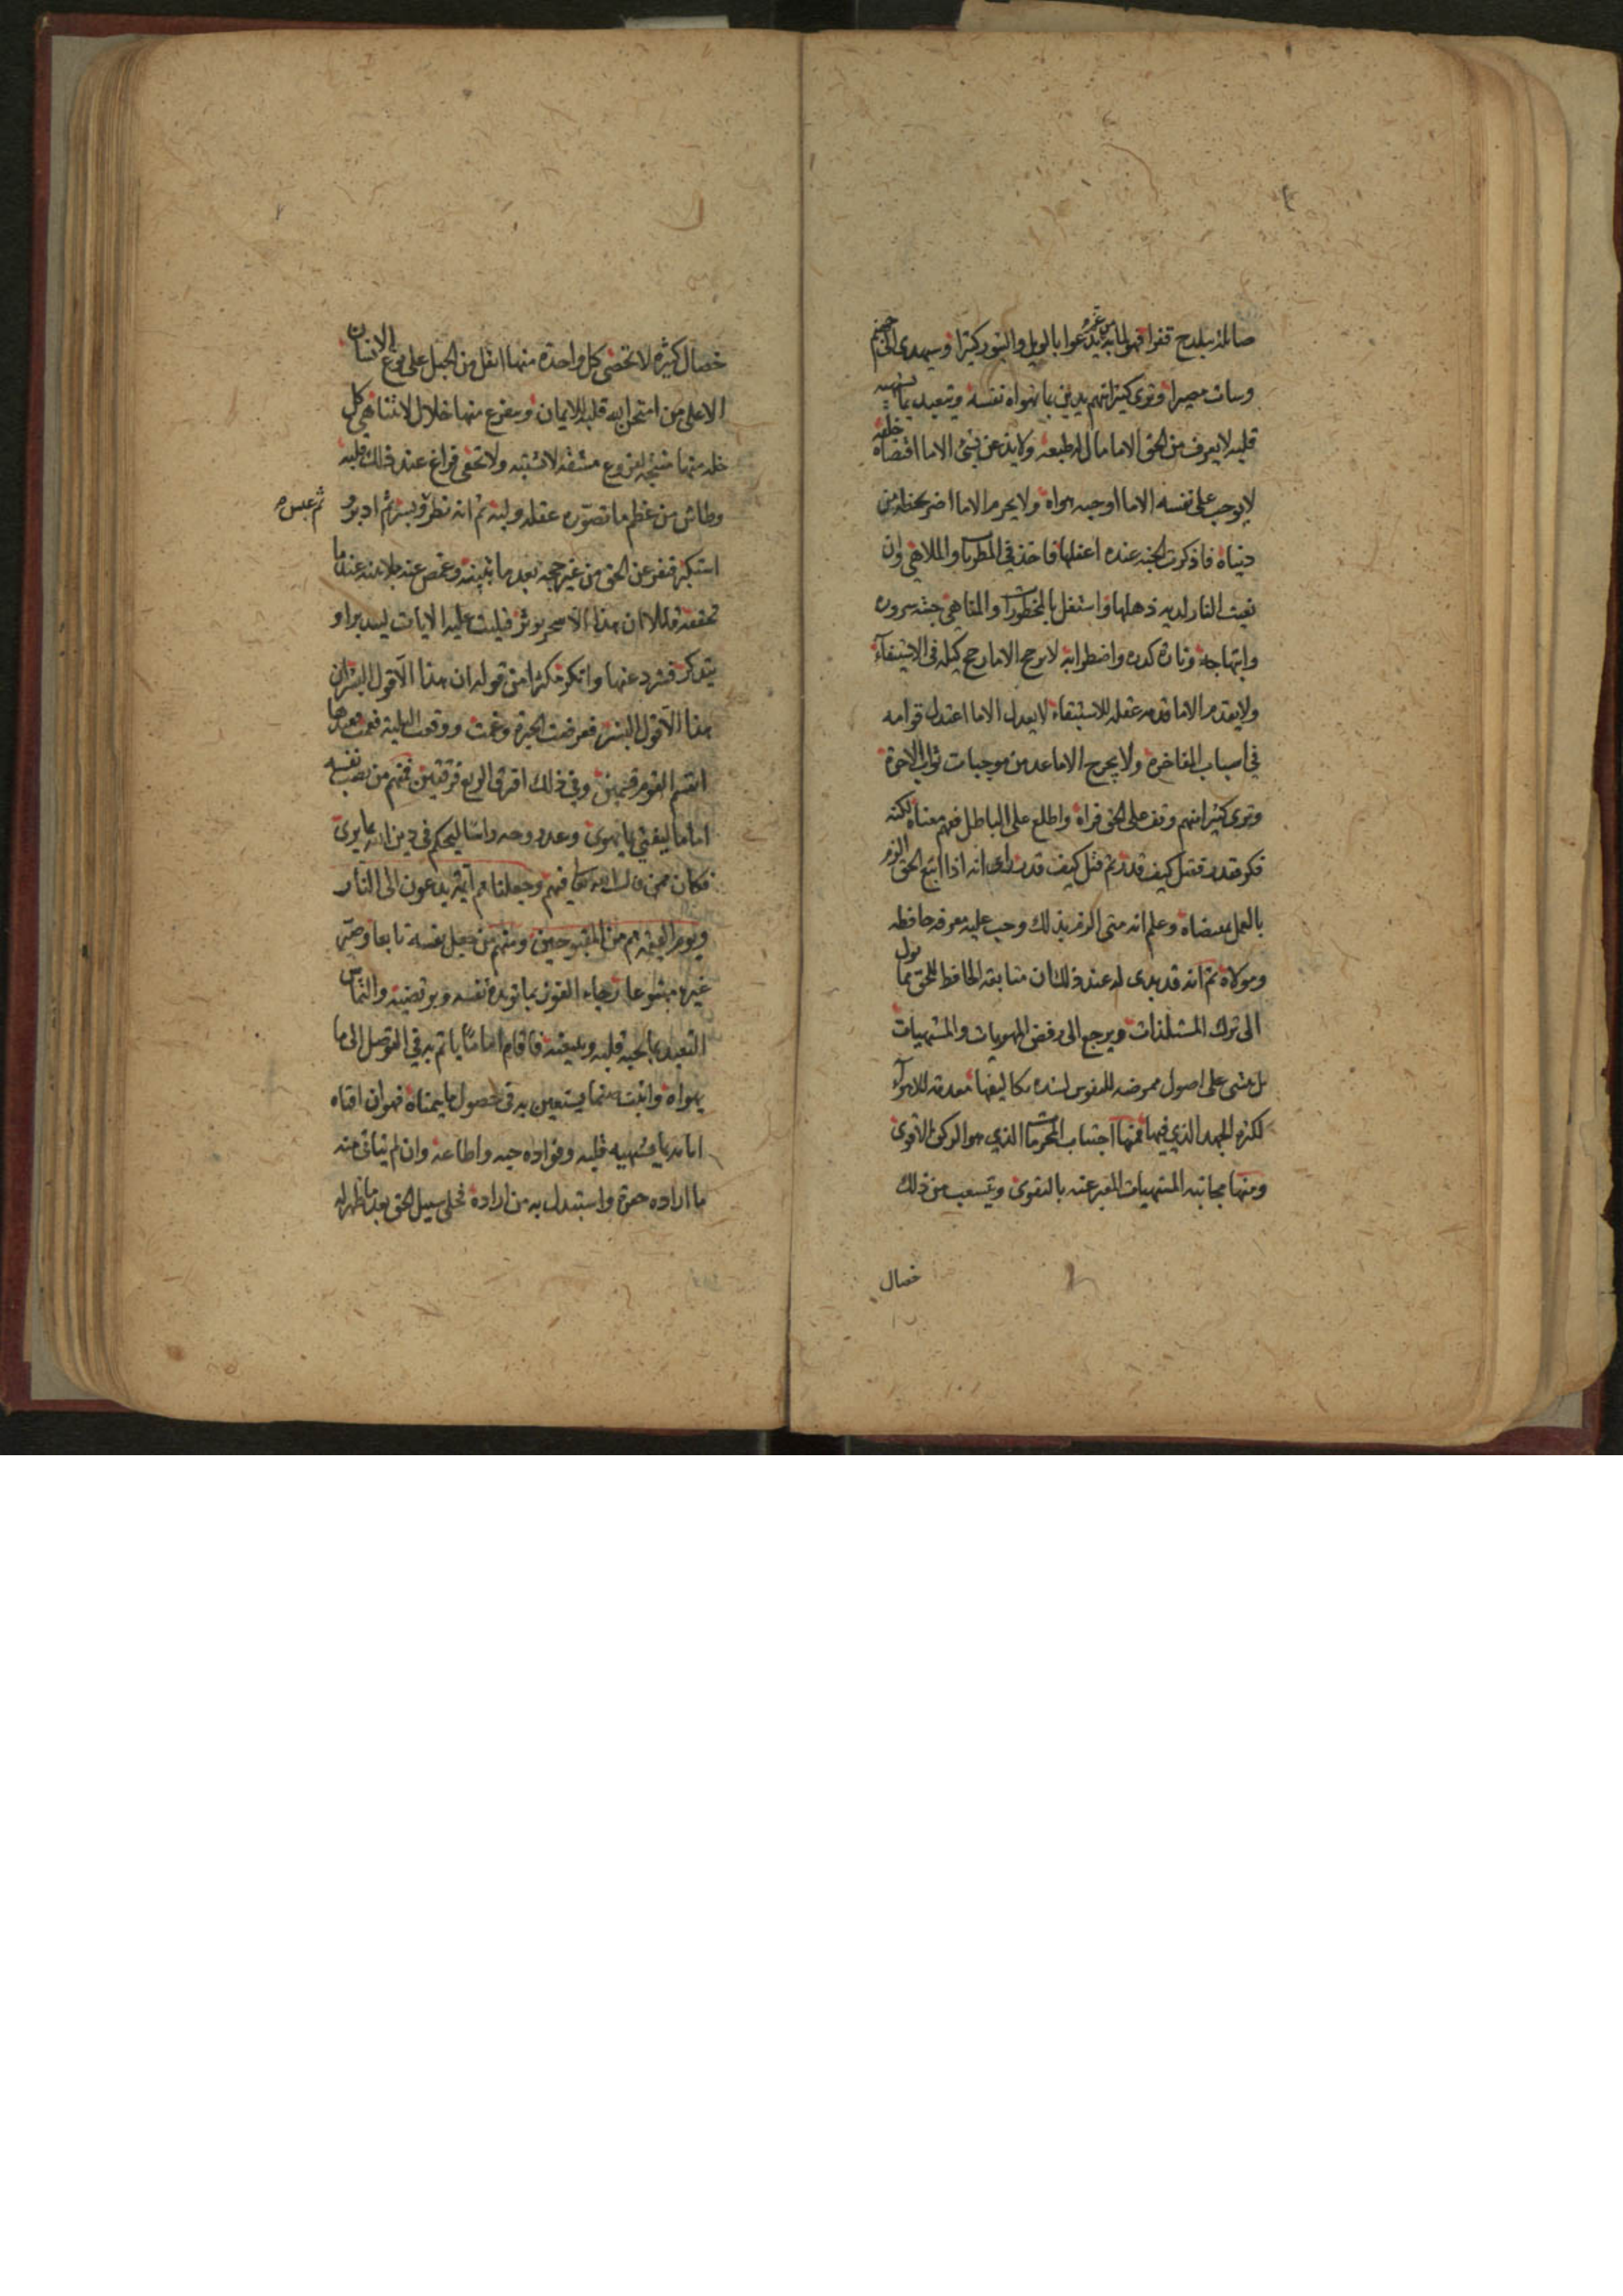 وساءت مصيرا وترى كثيرا منهم يدين بما تهواه نفسه ويتعبد بما يشتهيه
قلبه لا يعرف من الحق الا ما مال اليه طبعه ولا يذعن بشئ الا ما اقتضاه خلقه
لا يوجب على نفسه الا ما اوجبه هواه ولا يحرم الا ما اضر بحظه من
دنياه فاذا ذكرت الجنة عنده اغفلها فاخذ في المطربات والملاهي وان
نعيت النار لديه ذهلها واستغل بالمحظورات والمناهي جنته سروره
وابتهاجه وناره كدره واضطرابه لا يرجح الا ما رجح كيله في الاستيفاء
ولا يقدم الا ما قدمه عقله للاستبقاء لا يعدل الا ما اعتدل قوامه
في اسباب المفاخرة ولا يجرح الا ما عد من موجبات ثواب الاخرة
وترى كثيرا منهم وقف على الحق فراه واطلع على الباطل ففهم معناه لكنه
فكر وقدر فقتل كيف قدر ثم قتل كيف قدر راى انه اذا اتبع الحق الزم
بالعمل بمقتضاه وعلم انه متى الزم بذلك وجب عليه معرفة حافظه
ومولاه ثم انه قد بدى له عند ذلك ان متابعة الحافظ للحق مما تؤل
الى ترك المستلذات ويرجع الى رفض المهويات والمشتهيات
بل مبتنى على اصول ممرضة للنفوس لشدة تكاليفها معدمة للاهواء
لكثرة الجهد الذي فيها فمنها اجتناب المحرمات الذي هو الركن الاقوى
ومنها مجانبة المشتهيات المعبر عنه بالتقوى ويتشعب من ذلك
خصال
خصال كثيرة لا تحصى كل واحدة منها اثقل من الجبل على نوع الانسان
الا على من امتحن الله قلبه للايمان ويتفرع منها خلال لا تتناهى كل
خلة منها منتجة لفروع مشقة لا تشتبه ولا تخفى فراغ عند ذلك قلبه
وطاش من عظم ما تصوره عقله ولبه ثم انه نظر وبسر ثم ادبر و
ثم عبس
استكبر فنفر عن الحق من غير حجة بعد ما تبينه وغمض عنه بلا عذر عند ما
تحققه قائلا ان هذا الا سحر يؤثر فتليت عليه الايات ليدبر او
يتذكر فشرد عنها وانكر مكثرا من قوله ان هذا الا قول البشر ان
هذا الا قول البشر فعرضت الحيرة وعمت ووقعت البلية فعمت بعدها
انقسم القوم قسمين وفي ذلك افترق الجمع فرقتين فمنهم من نصب نفسه
اماما ليفتي بما يهوى وعدد وجه راسا ليحكم في دين الله بما يرى
فكان ممن قال الله تعالى فيهم وجعلناهم ائمة يدعون الى النار
ويوم القيمة هم من المقبوحين ومنهم من جعل نفسه تابعا وصير
غيره متبوعا رجاء الفوز بما تريده نفسه ويرتضيه والتماس
التعبد بما يحبه قلبه ويبتغيه فاقام اماما ياتم به في التوصل الى ما
يهواه واثبت صنما يستعين به في حصول ما يتمناه فهو ان افتاه
امامه بما يشتهيه قلبه وفؤاده حبه واطاعه وان لم يتاتى منه
ما اراده هجره واستبدل به من اراده فخلى سبيل الحق بعد ما ظهر له